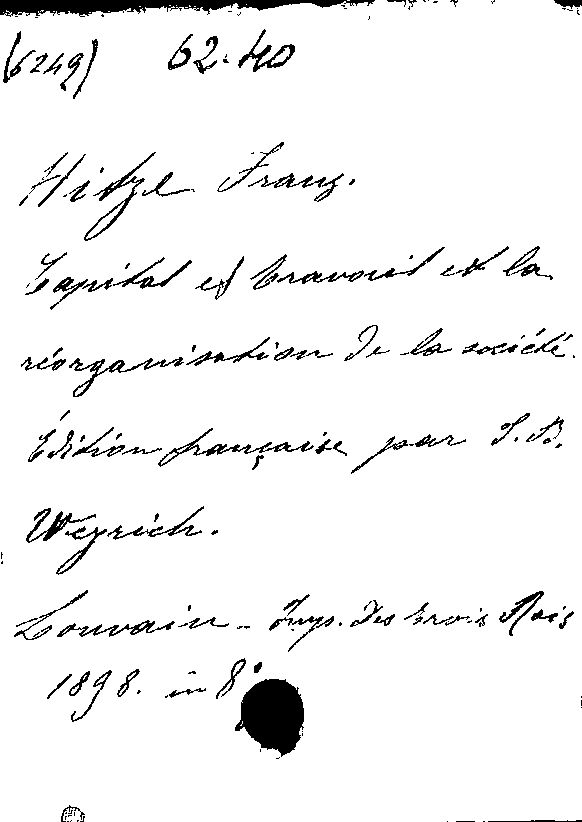 (6249) 62.40
Hitze Franz.
Capital et travail et la
réorganisation de la société.
Édition française par J. B.
Weyrich.
Louvain - Imp. des trois Rois
1898. in 8°